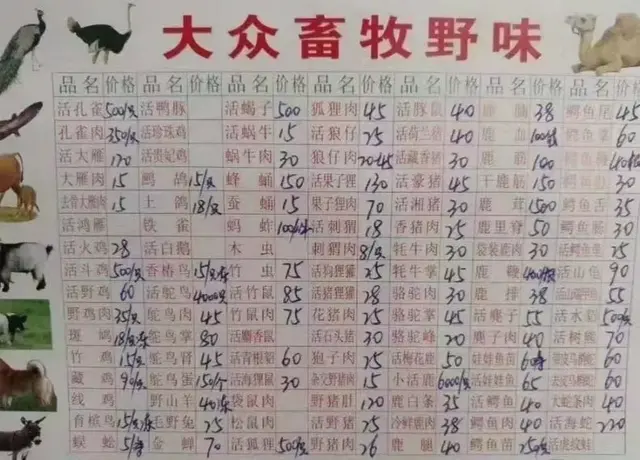 大众畜牧野味
品名 价格 品名 价格 品名 价格 品名 价格 品名 价格 品名 价格 品名 价格
活孔雀 500/只 活鸭豚 活蝎子 500 狐狸肉 45 活豚鼠 40 鹿 38 鳄鱼尾 45
孔雀肉 350/只 活珍珠鸡 活蜗牛 15 活狼仔 75 活荷兰猪 40 鹿血 鳄鱼掌 60
活大雁 120 活贵妃鸡 蜗牛肉 30 狼仔肉 活藏香猪 30 鹿筋 100 鳄鱼
大雁肉 15 鹧鸪 15/只 蜂蛹 150 活果子狸 130 活豪猪 45 干鹿筋 150 鳄鱼 30
去骨大雁肉 15 土鸽 18/只 蚕蛹 15 果子狸肉 70 活湘猪 30 鹿茸 1500 鳄鱼舌 35
活鸿雁 铁雀 蚂蚱 活刺猬 18 香猪肉 25 鹿里脊 50 鳄鱼肠 30
活火鸡 28 活白鹅 木虫 刺猬肉 8/只 牦牛肉 30 袋装鹿肉 30 活鳄鱼龟 25
活斗鸡 500/只 香椿鸟 15/ 竹虫 75 活狗狸獾 25 牦牛掌 45 鹿鞭 活山龟 90
活野鸡 60 活鸵鸟 4000/只 活竹鼠 85 活猪狸獾 28 骆驼肉 30 鹿排 38 55
野鸡肉 35/只 鸵鸟肉 45 竹鼠肉 75 花猪肉 25 骆驼掌 45 活麂子 55 活水貂 500/
斑鸠 18/只 鸵鸟掌 80 活麝香鼠 活石头猪 30 骆驼峰 20 麂子肉 40 活树熊 70
竹鸡 15/只 鸵鸟肾 45 活青根貂 60 狍子肉 25 活梅花鹿 50 娃娃鱼苗 60 60
藏鸡 90/只 鸵鸟蛋 150/个 活海狸鼠 30 杂交野猪肉 15 小活鹿 6000/只 活娃娃鱼 65 60
线鸡 野山羊 40/ 袋鼠肉 野猪肚 120 鹿白条 35 活鳄鱼 40 大蛇条肉 40
育槟鸟 15/只 毛野兔 25 松鼠肉 活野猪 25 冷鲜鹿肉 38 鳄鱼肉 40 活海蛇 220
蜈蚣 5/ 金蝉 70 活狐狸 500/只 野猪肉 26 鹿腿 40 鳄鱼苗 250/只 活虎纹蛙